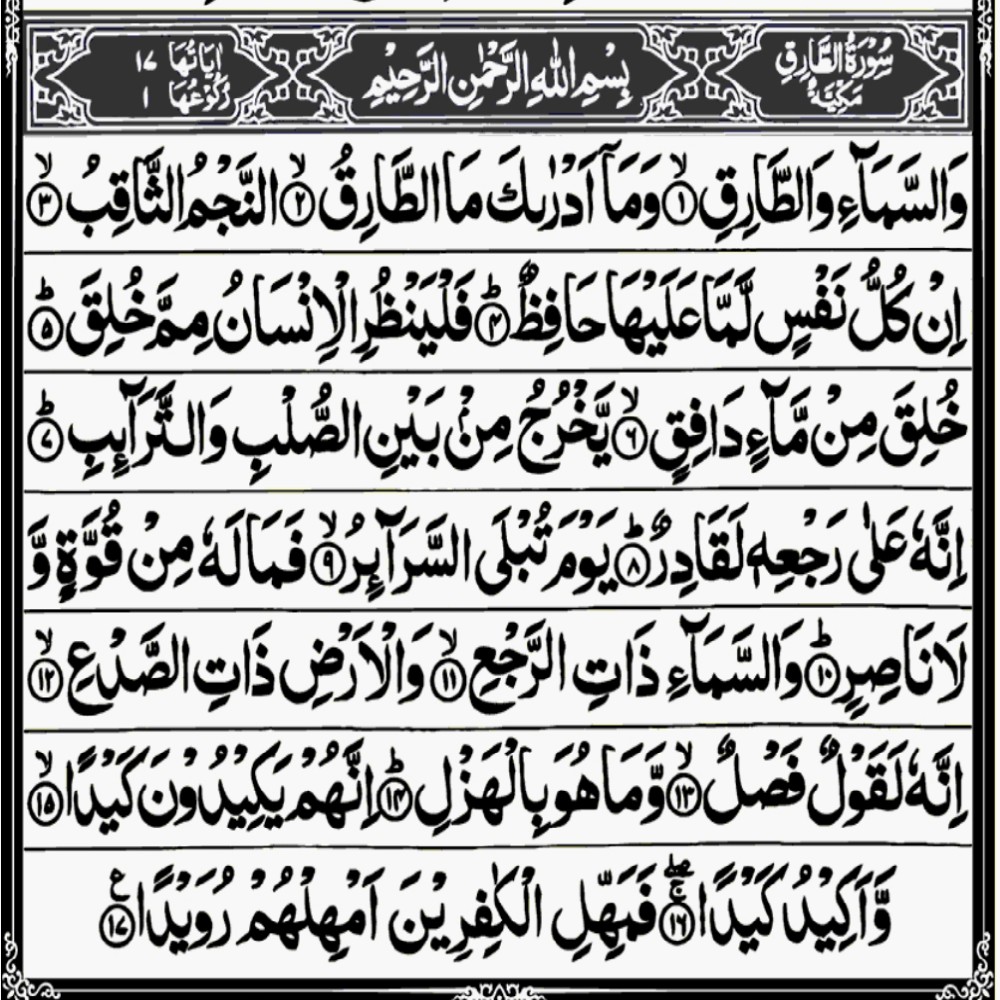 سُوْرَةُ الطَّارِقِ مَكِّيَّةٌ
بِسْمِ اللهِ الرَّحْمٰنِ الرَّحِيْمِ
اٰيَاتُهَا ١٧ رُكُوْعُهَا ١
وَالسَّمَآءِ وَالطَّارِقِ ۙ﴿١﴾ وَمَآ اَدْرٰىكَ مَا الطَّارِقُ ۙ﴿٢﴾ النَّجْمُ الثَّاقِبُ ۙ﴿٣﴾
اِنْ كُلُّ نَفْسٍ لَّمَّا عَلَيْهَا حَافِظٌ ؕ﴿۴﴾ فَلْيَنْظُرِ الْاِنْسَانُ مِمَّ خُلِقَ ؕ﴿۵﴾
خُلِقَ مِنْ مَّآءٍ دَافِقٍ ۙ﴿۶﴾ يَّخْرُجُ مِنْۢ بَيْنِ الصُّلْبِ وَالتَّرَآئِبِ ؕ﴿۷﴾
اِنَّهٗ عَلٰى رَجْعِهٖ لَقَادِرٌ ؕ﴿۸﴾ يَوْمَ تُبْلَى السَّرَآئِرُ ۙ﴿۹﴾ فَمَا لَهٗ مِنْ قُوَّةٍ وَّ
لَا نَاصِرٍ ؕ﴿۱۰﴾ وَالسَّمَآءِ ذَاتِ الرَّجْعِ ۙ﴿۱۱﴾ وَالْاَرْضِ ذَاتِ الصَّدْعِ ۙ﴿۱۲﴾
اِنَّهٗ لَقَوْلٌ فَصْلٌ ۙ﴿۱۳﴾ وَّمَا هُوَ بِالْهَزْلِ ؕ﴿۱۴﴾ اِنَّهُمْ يَكِيْدُوْنَ كَيْدًا ۙ﴿۱۵﴾
وَّاَكِيْدُ كَيْدًا ۚۖ﴿۱۶﴾ فَمَهِّلِ الْكٰفِرِيْنَ اَمْهِلْهُمْ رُوَيْدًا ﴿۱۷﴾ ع